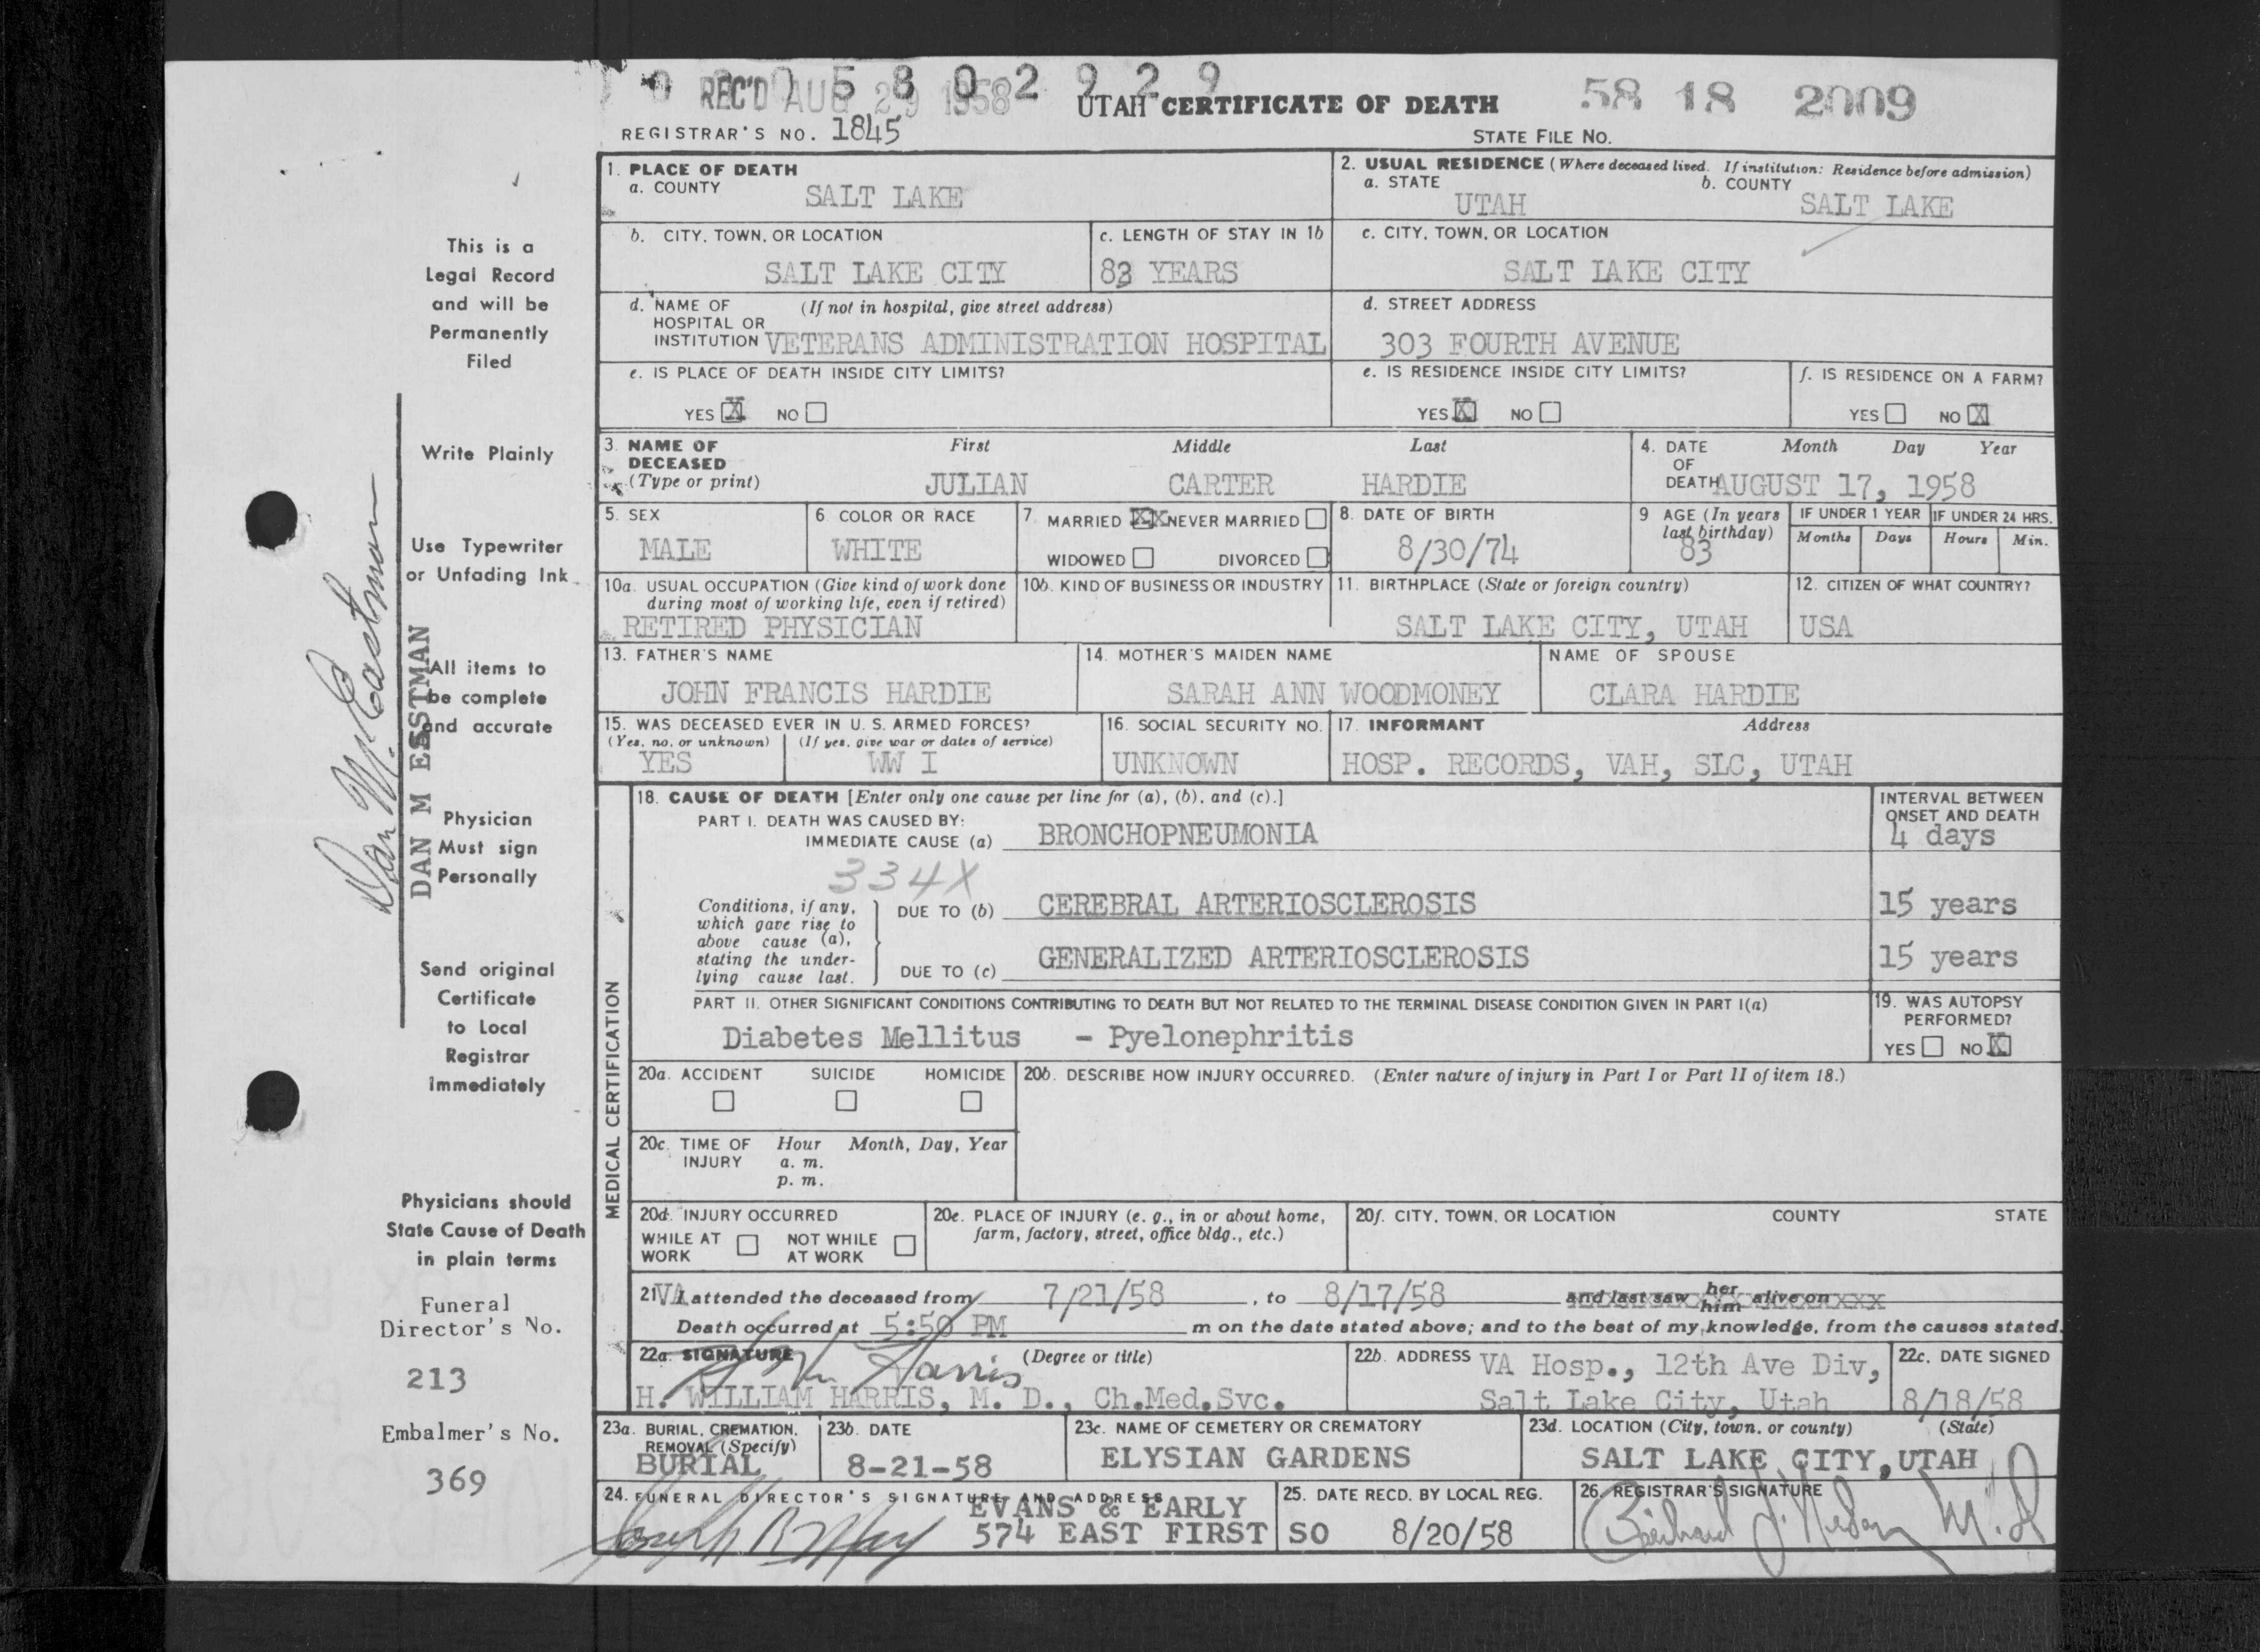 REC'D AUG 29 1958
5 8 0 2 9 2 9
UTAH CERTIFICATE OF DEATH
58 18 2009
REGISTRAR'S NO. 1845
STATE FILE NO.
1. PLACE OF DEATH
a. COUNTY
SALT LAKE
2. USUAL RESIDENCE (Where deceased lived. If institution: Residence before admission)
a. STATE
UTAH
b. COUNTY
SALT LAKE
b. CITY, TOWN, OR LOCATION
SALT LAKE CITY
c. LENGTH OF STAY IN 1b
83 YEARS
c. CITY, TOWN, OR LOCATION
SALT LAKE CITY
d. NAME OF (If not in hospital, give street address)
HOSPITAL OR
INSTITUTION VETERANS ADMINISTRATION HOSPITAL
d. STREET ADDRESS
303 FOURTH AVENUE
e. IS PLACE OF DEATH INSIDE CITY LIMITS?
YES X NO
e. IS RESIDENCE INSIDE CITY LIMITS?
YES X NO
f. IS RESIDENCE ON A FARM?
YES NO X
3. NAME OF First Middle Last
DECEASED
(Type or print) JULIAN CARTER HARDIE
4. DATE Month Day Year
OF
DEATH AUGUST 17, 1958
5. SEX
MALE
6. COLOR OR RACE
WHITE
7. MARRIED XX NEVER MARRIED
WIDOWED DIVORCED
8. DATE OF BIRTH
8/30/74
9 AGE (In years
last birthday)
83
IF UNDER 1 YEAR
Months Days
IF UNDER 24 HRS.
Hours Min.
10a. USUAL OCCUPATION (Give kind of work done
during most of working life, even if retired)
RETIRED PHYSICIAN
10b. KIND OF BUSINESS OR INDUSTRY
11. BIRTHPLACE (State or foreign country)
SALT LAKE CITY, UTAH
12. CITIZEN OF WHAT COUNTRY?
USA
13. FATHER'S NAME
JOHN FRANCIS HARDIE
14. MOTHER'S MAIDEN NAME
SARAH ANN WOODMONEY
NAME OF SPOUSE
CLARA HARDIE
15. WAS DECEASED EVER IN U. S. ARMED FORCES?
(Yes, no, or unknown) (If yes, give war or dates of service)
YES WW I
16. SOCIAL SECURITY NO.
UNKNOWN
17. INFORMANT Address
HOSP. RECORDS, VAH, SLC, UTAH
MEDICAL CERTIFICATION
18. CAUSE OF DEATH [Enter only one cause per line for (a), (b), and (c).]
PART I. DEATH WAS CAUSED BY:
IMMEDIATE CAUSE (a) BRONCHOPNEUMONIA
INTERVAL BETWEEN
ONSET AND DEATH
4 days
334X
Conditions, if any,
which gave rise to
above cause (a),
stating the under-
lying cause last.
DUE TO (b) CEREBRAL ARTERIOSCLEROSIS 15 years
DUE TO (c) GENERALIZED ARTERIOSCLEROSIS 15 years
PART II. OTHER SIGNIFICANT CONDITIONS CONTRIBUTING TO DEATH BUT NOT RELATED TO THE TERMINAL DISEASE CONDITION GIVEN IN PART I(a)
Diabetes Mellitus - Pyelonephritis
19. WAS AUTOPSY
PERFORMED?
YES NO X
20a. ACCIDENT SUICIDE HOMICIDE
20b. DESCRIBE HOW INJURY OCCURRED. (Enter nature of injury in Part I or Part II of item 18.)
20c. TIME OF Hour Month, Day, Year
INJURY a. m.
p. m.
20d. INJURY OCCURRED
WHILE AT NOT WHILE
WORK AT WORK
20e. PLACE OF INJURY (e. g., in or about home,
farm, factory, street, office bldg., etc.)
20f. CITY, TOWN, OR LOCATION COUNTY STATE
21 VA attended the deceased from 7/21/58, to 8/17/58 and last saw her him alive on XXX
Death occurred at 5:50 PM m on the date stated above; and to the best of my knowledge, from the causes stated.
22a. SIGNATURE (Degree or title)
H. WILLIAM HARRIS, M. D., Ch.Med.Svc.
22b. ADDRESS VA Hosp., 12th Ave Div,
Salt Lake City, Utah
22c. DATE SIGNED
8/18/58
23a. BURIAL, CREMATION,
REMOVAL (Specify)
BURIAL
23b. DATE
8-21-58
23c. NAME OF CEMETERY OR CREMATORY
ELYSIAN GARDENS
23d. LOCATION (City, town, or county) (State)
SALT LAKE CITY, UTAH
24. FUNERAL DIRECTOR'S SIGNATURE AND ADDRESS
EVANS & EARLY
574 EAST FIRST SO
25. DATE RECD. BY LOCAL REG.
8/20/58
26. REGISTRAR'S SIGNATURE
This is a
Legal Record
and will be
Permanently
Filed
Write Plainly
Use Typewriter
or Unfading Ink
All items to
be complete
and accurate
Physician
Must sign
Personally
Send original
Certificate
to Local
Registrar
immediately
Physicians should
State Cause of Death
in plain terms
Funeral
Director's No.
213
Embalmer's No.
369
Dan M. Eastman
DAN M EASTMAN